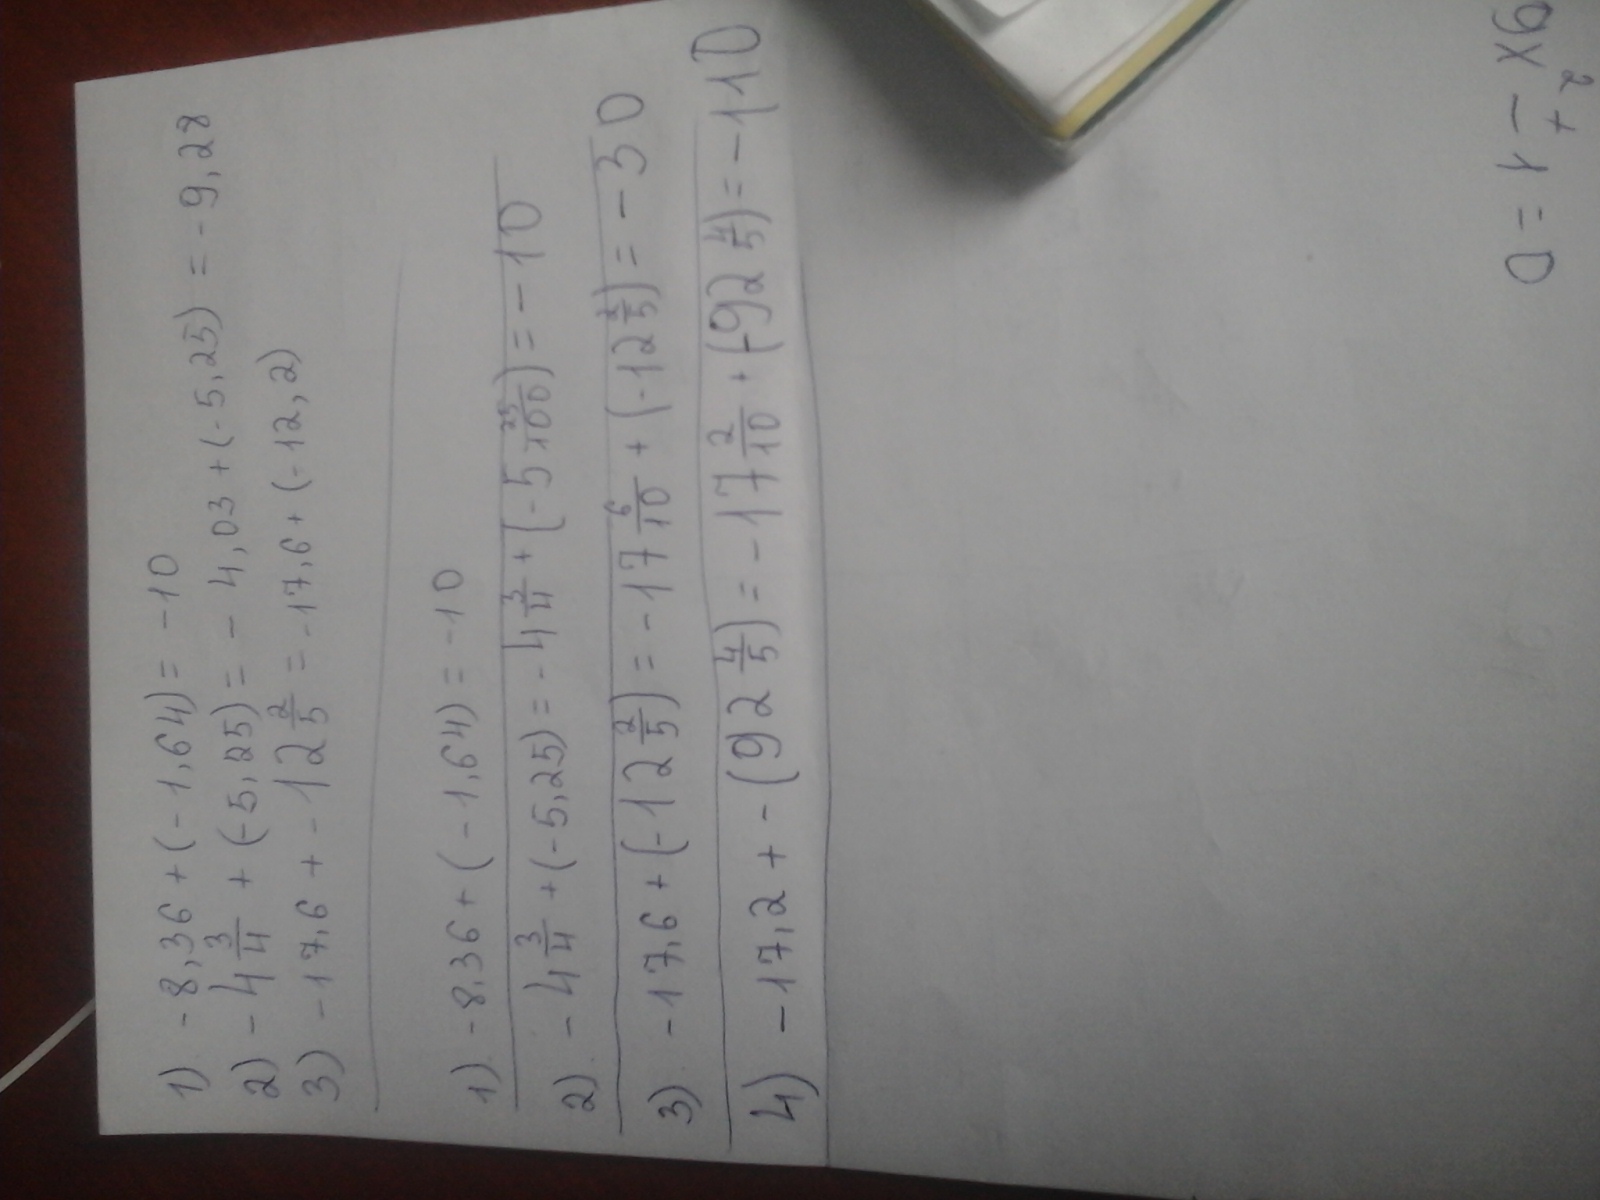 1) -8,36 + (-1,64) = -10
2) -4 3/4 + (-5,25) = -4,03 + (-5,25) = -9,28
3) -17,6 + -12 2/5 = -17,6 + (-12,2)
1) -8,36 + (-1,64) = -10
2) -4 3/4 + (-5,25) = -4 3/4 + (-5 25/100) = -10
3) -17,6 + (-12 2/5) = -17 6/10 + (-12 2/5) = -30
4) -17,2 + -(92 4/5) = -17 2/10 + (-92 4/5) = -110